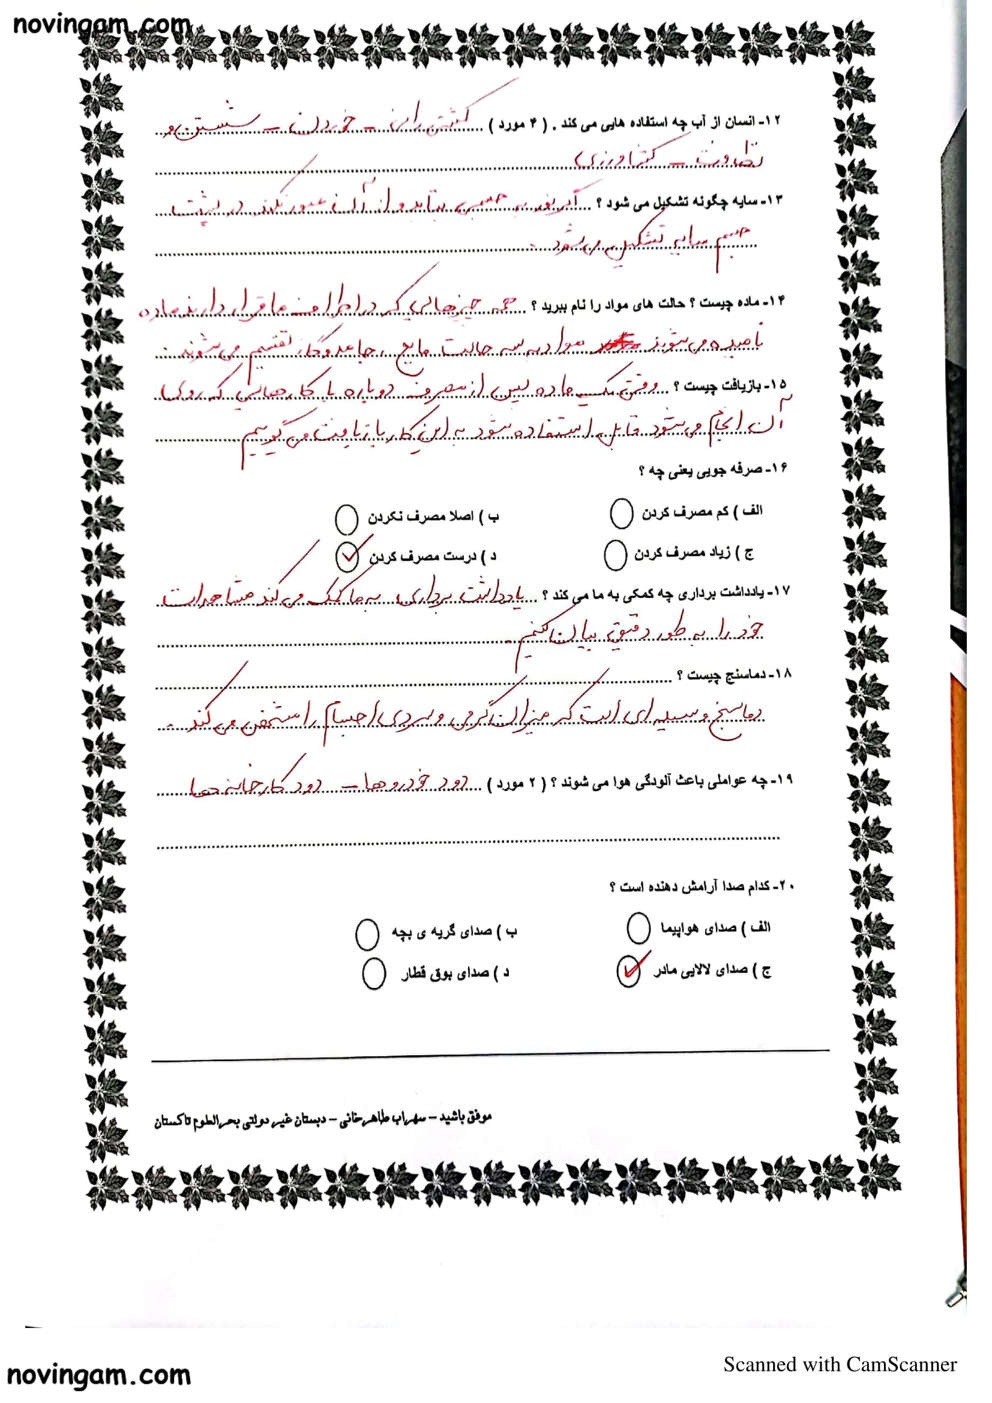 novingam.com
۱۲- انسان از آب چه استفاده هایی می کند . ( ۴ مورد ) کشتی رانی - خوردن - شستن و
نظافت - کشاورزی
۱۳- سایه چگونه تشکیل می شود ؟ اگر نور به جسمی بتابد و از آن عبور نکند در پشت
جسم سایه تشکیل می شود .
۱۴- ماده چیست ؟ حالت های مواد را نام ببرید ؟ همه چیزهایی که در اطراف ما قرار دارند ماده
نامیده می شوند مواد به سه حالت مایع ، جامد و گاز تقسیم می شوند .
۱۵- بازیافت چیست ؟ وقتی یک ماده پس از مصرف دوباره با کارهایی که روی
آن انجام می شود قابل استفاده شود به این کار بازیافت می گوییم
۱۶- صرفه جویی یعنی چه ؟
الف ) کم مصرف کردن ب ) اصلا مصرف نکردن
ج ) زیاد مصرف کردن د ) درست مصرف کردن
۱۷- یادداشت برداری چه کمکی به ما می کند ؟ یادداشت برداری به ما کمک می کند مشاهدات
خود را به طور دقیق بیان کنیم .
۱۸- دماسنج چیست ؟
دماسنج وسیله ای است که میزان گرمی و سردی اجسام را مشخص می کند .
۱۹- چه عواملی باعث آلودگی هوا می شوند ؟ ( ۲ مورد ) دود خودروها - دود کارخانه ها
۲۰- کدام صدا آرامش دهنده است ؟
الف ) صدای هواپیما ب ) صدای گریه ی بچه
ج ) صدای لالایی مادر د ) صدای بوق قطار
موفق باشید - سهراب طاهرخانی - دبستان غیر دولتی بحرالعلوم تاکستان
Scanned with CamScanner
novingam.com